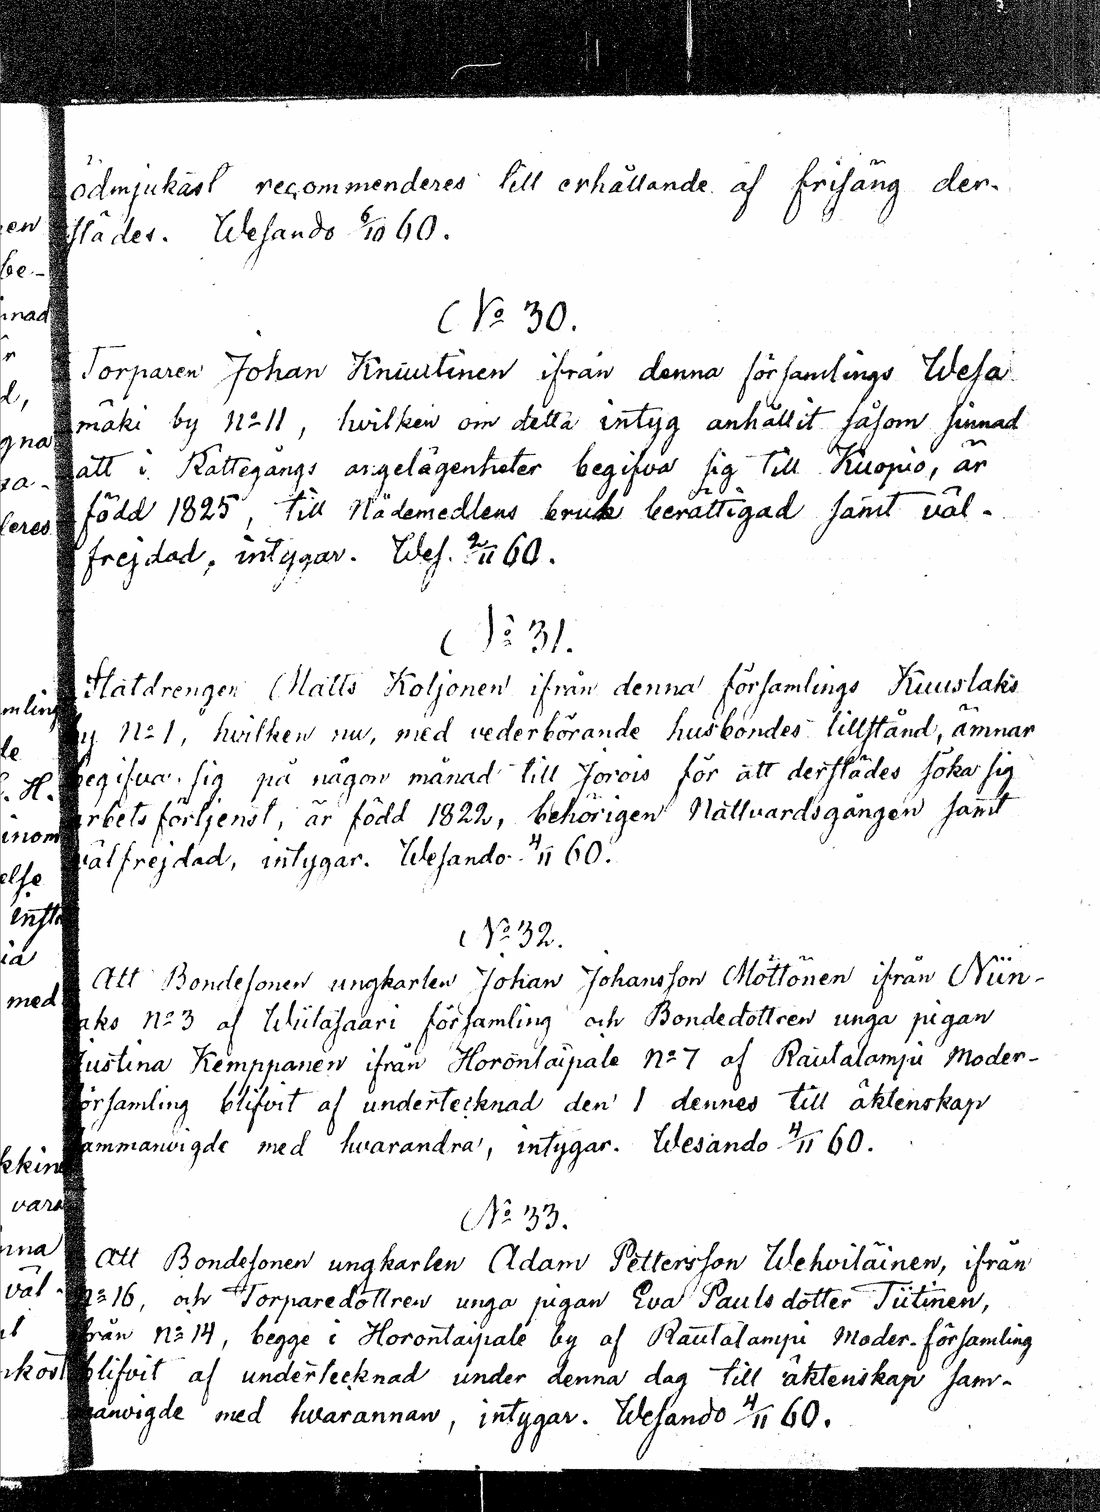 ödmjukast recommenderes till erhållande af frisäng der-
städes. Wesando 6/10 60.
No 30.
Torparen Johan Knuutinen ifrån denna församlings Wesa
mäki by No 11, hvilken om detta intyg anhållit såsom sinnad
att i Rättegångs angelägenheter begifva sig till Kuopio, är
född 1825, till Nådemedlens bruk berättigad samt väl-
frejdad, intygar. Wes. 2/11 60.
No 31.
Statdrengen Matts Koljonen ifrån denna församlings Kuuslaks
by No 1, hvilken nu, med vederbörande husbondes tillstånd, ämnar
begifva sig på någon månad till Jorois för att derstädes söka sig
arbetsförtjenst, är född 1822, behörigen Nattvardsgången samt
välfrejdad, intygar. Wesando 4/11 60.
No 32.
Att Bondesonen ungkarlen Johan Johansson Möttönen ifrån Niin-
laks No 3 af Wiitasaari församling och Bondedottren unga pigan
Justina Kemppanen ifrån Horontaipale No 7 af Rautalampi Moder-
församling blifvit af undertecknad den 1 dennes till äktenskap
sammanvigde med hvarandra, intygar. Wesando 4/11 60.
No 33.
Att Bondesonen ungkarlen Adam Pettersson Wehviläinen, ifrån
No 16, och Torparedottren unga pigan Eva Paulsdotter Tiitinen,
ifrån No 14, begge i Horontaipale by af Rautalampi Moder-församling
blifvit af undertecknad under denna dag till äktenskap sam-
manvigde med hvarannan, intygar. Wesando 4/11 60.